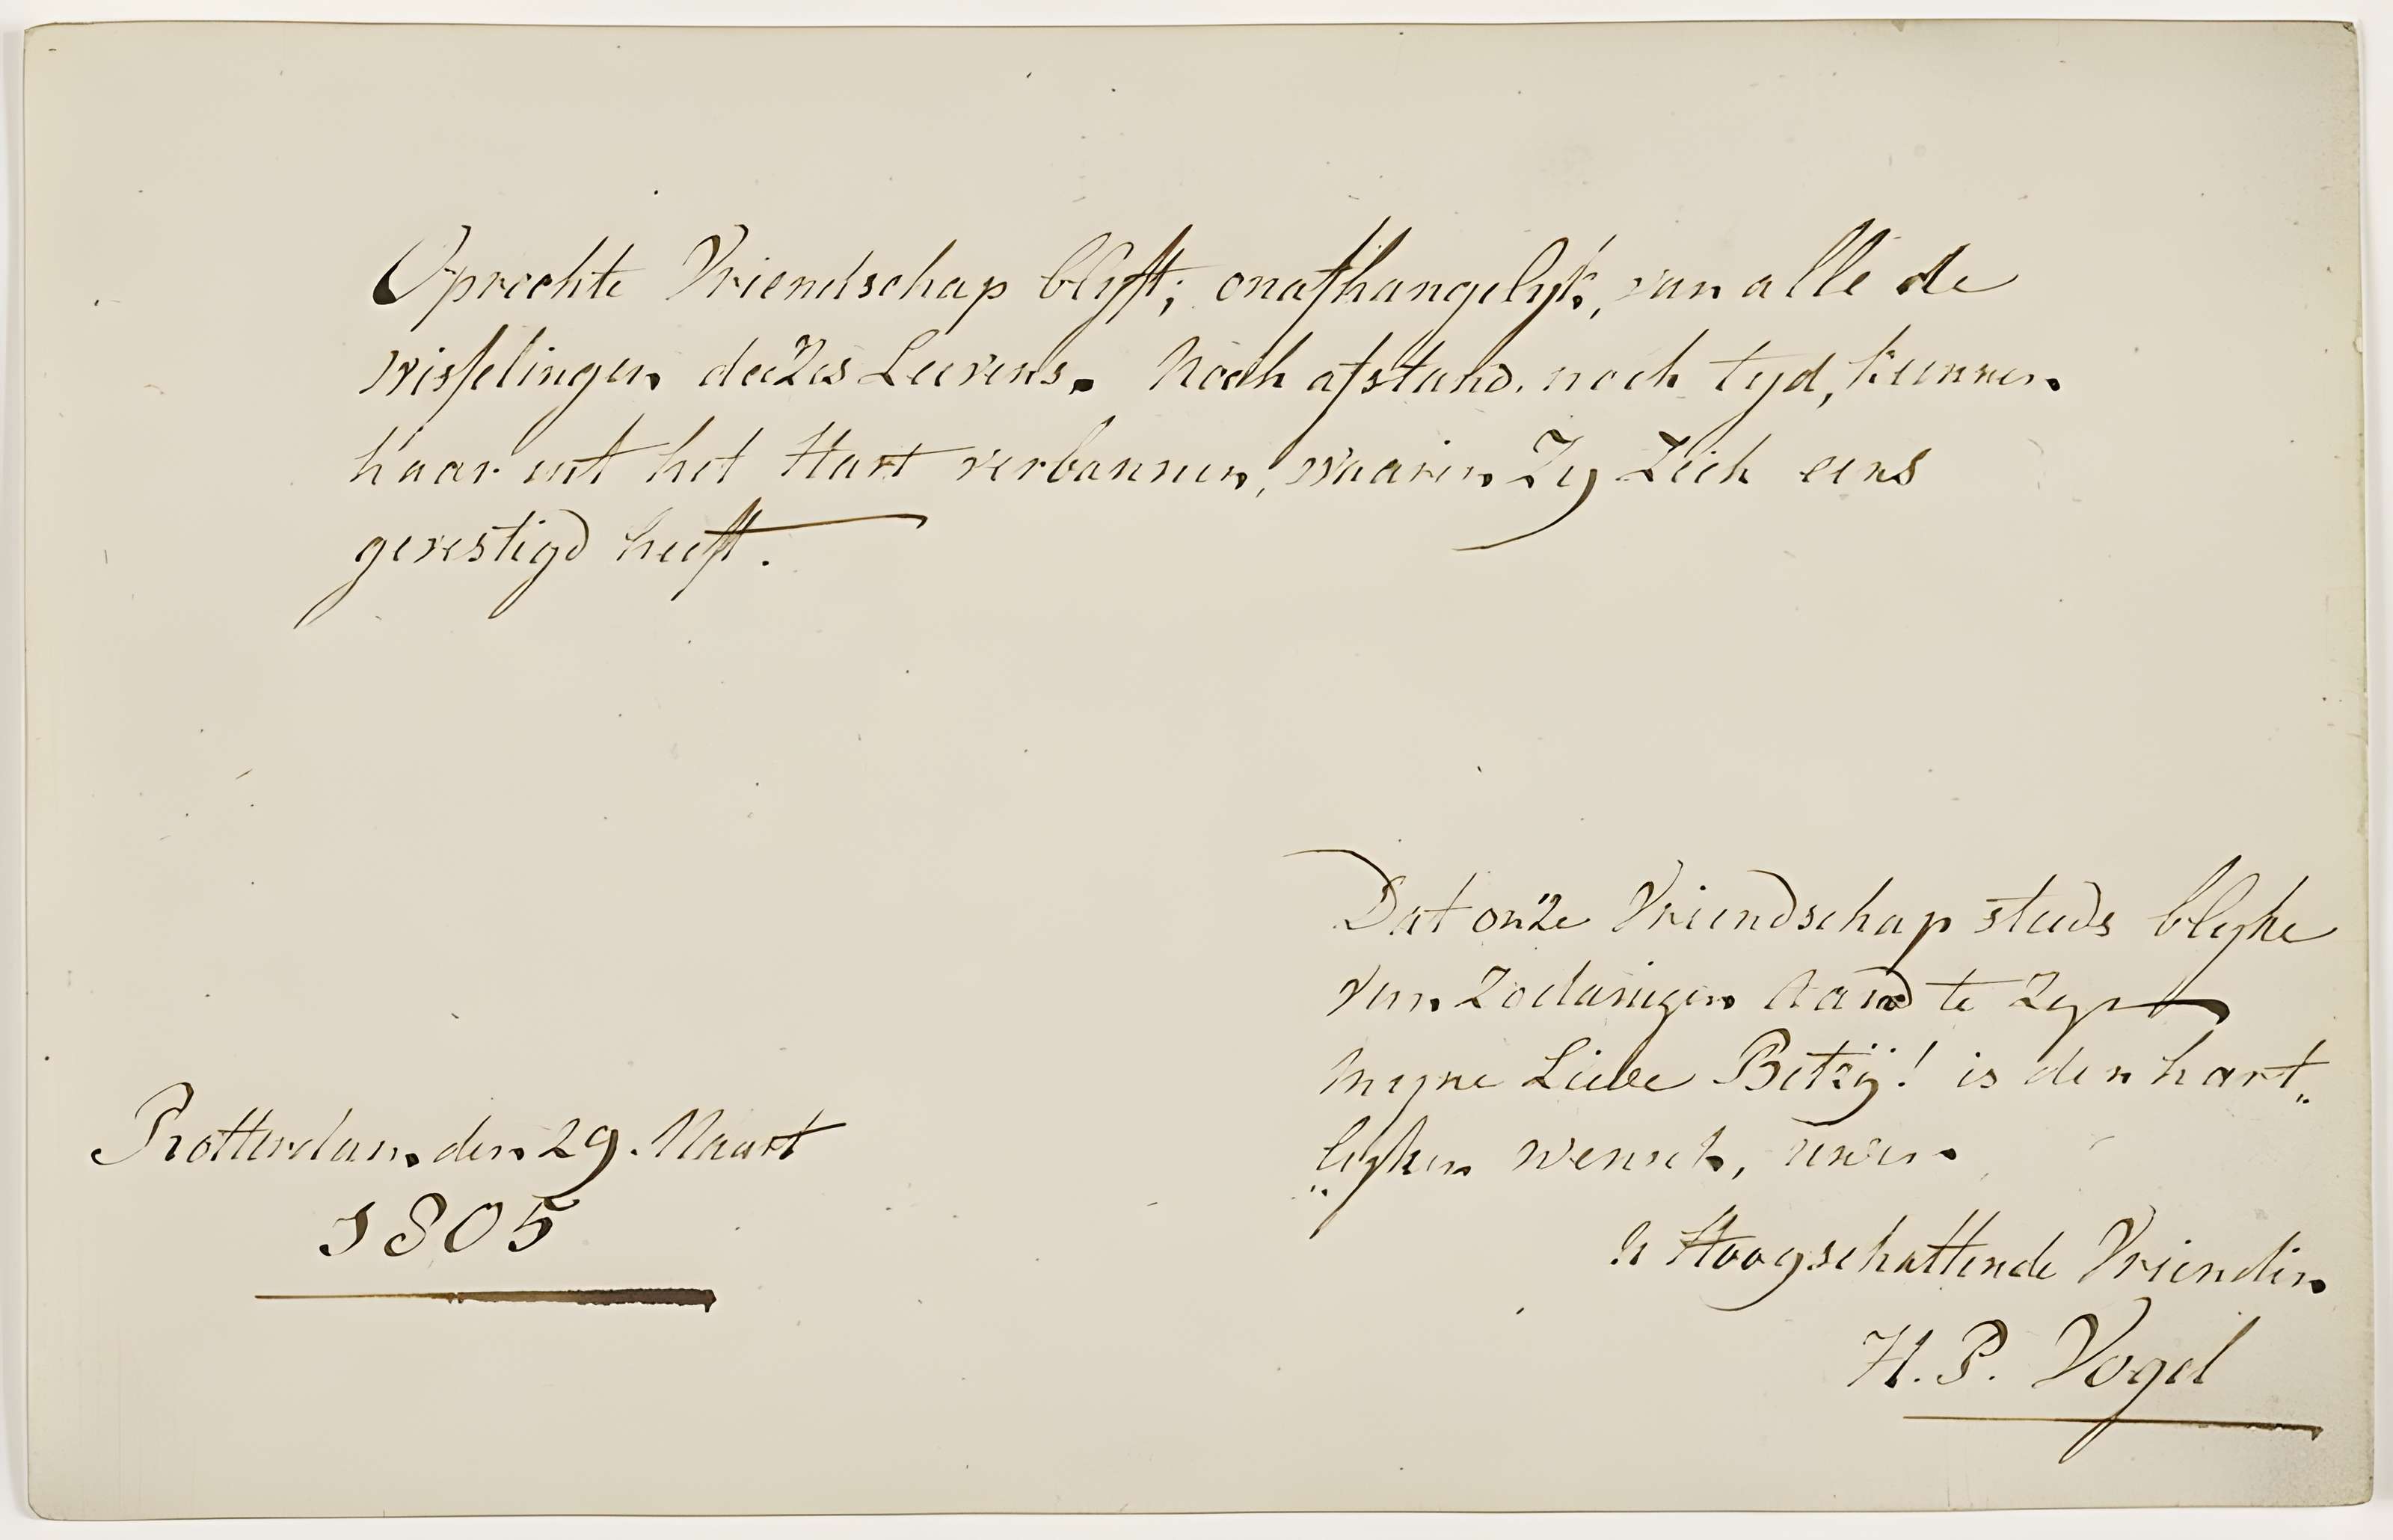 Oprechte Vriendschap blyft; onafhangelyk, van alle de
wisselingen deezes Leevens. Noch afstand, noch tyd, kunnen
haar uit het Hart verbannen, waarin Zy Zich eens
gevestigd heeft.
Dat onze Vriendschap steeds blyke
van Zodanigen Aard te Zyn
Myne Lieve Betzÿ! is den hart„
„lyken wensch, uwer
Hoogschattende Vriendin
H. P. Vogel
Rotterdam den 29. Maart
1805